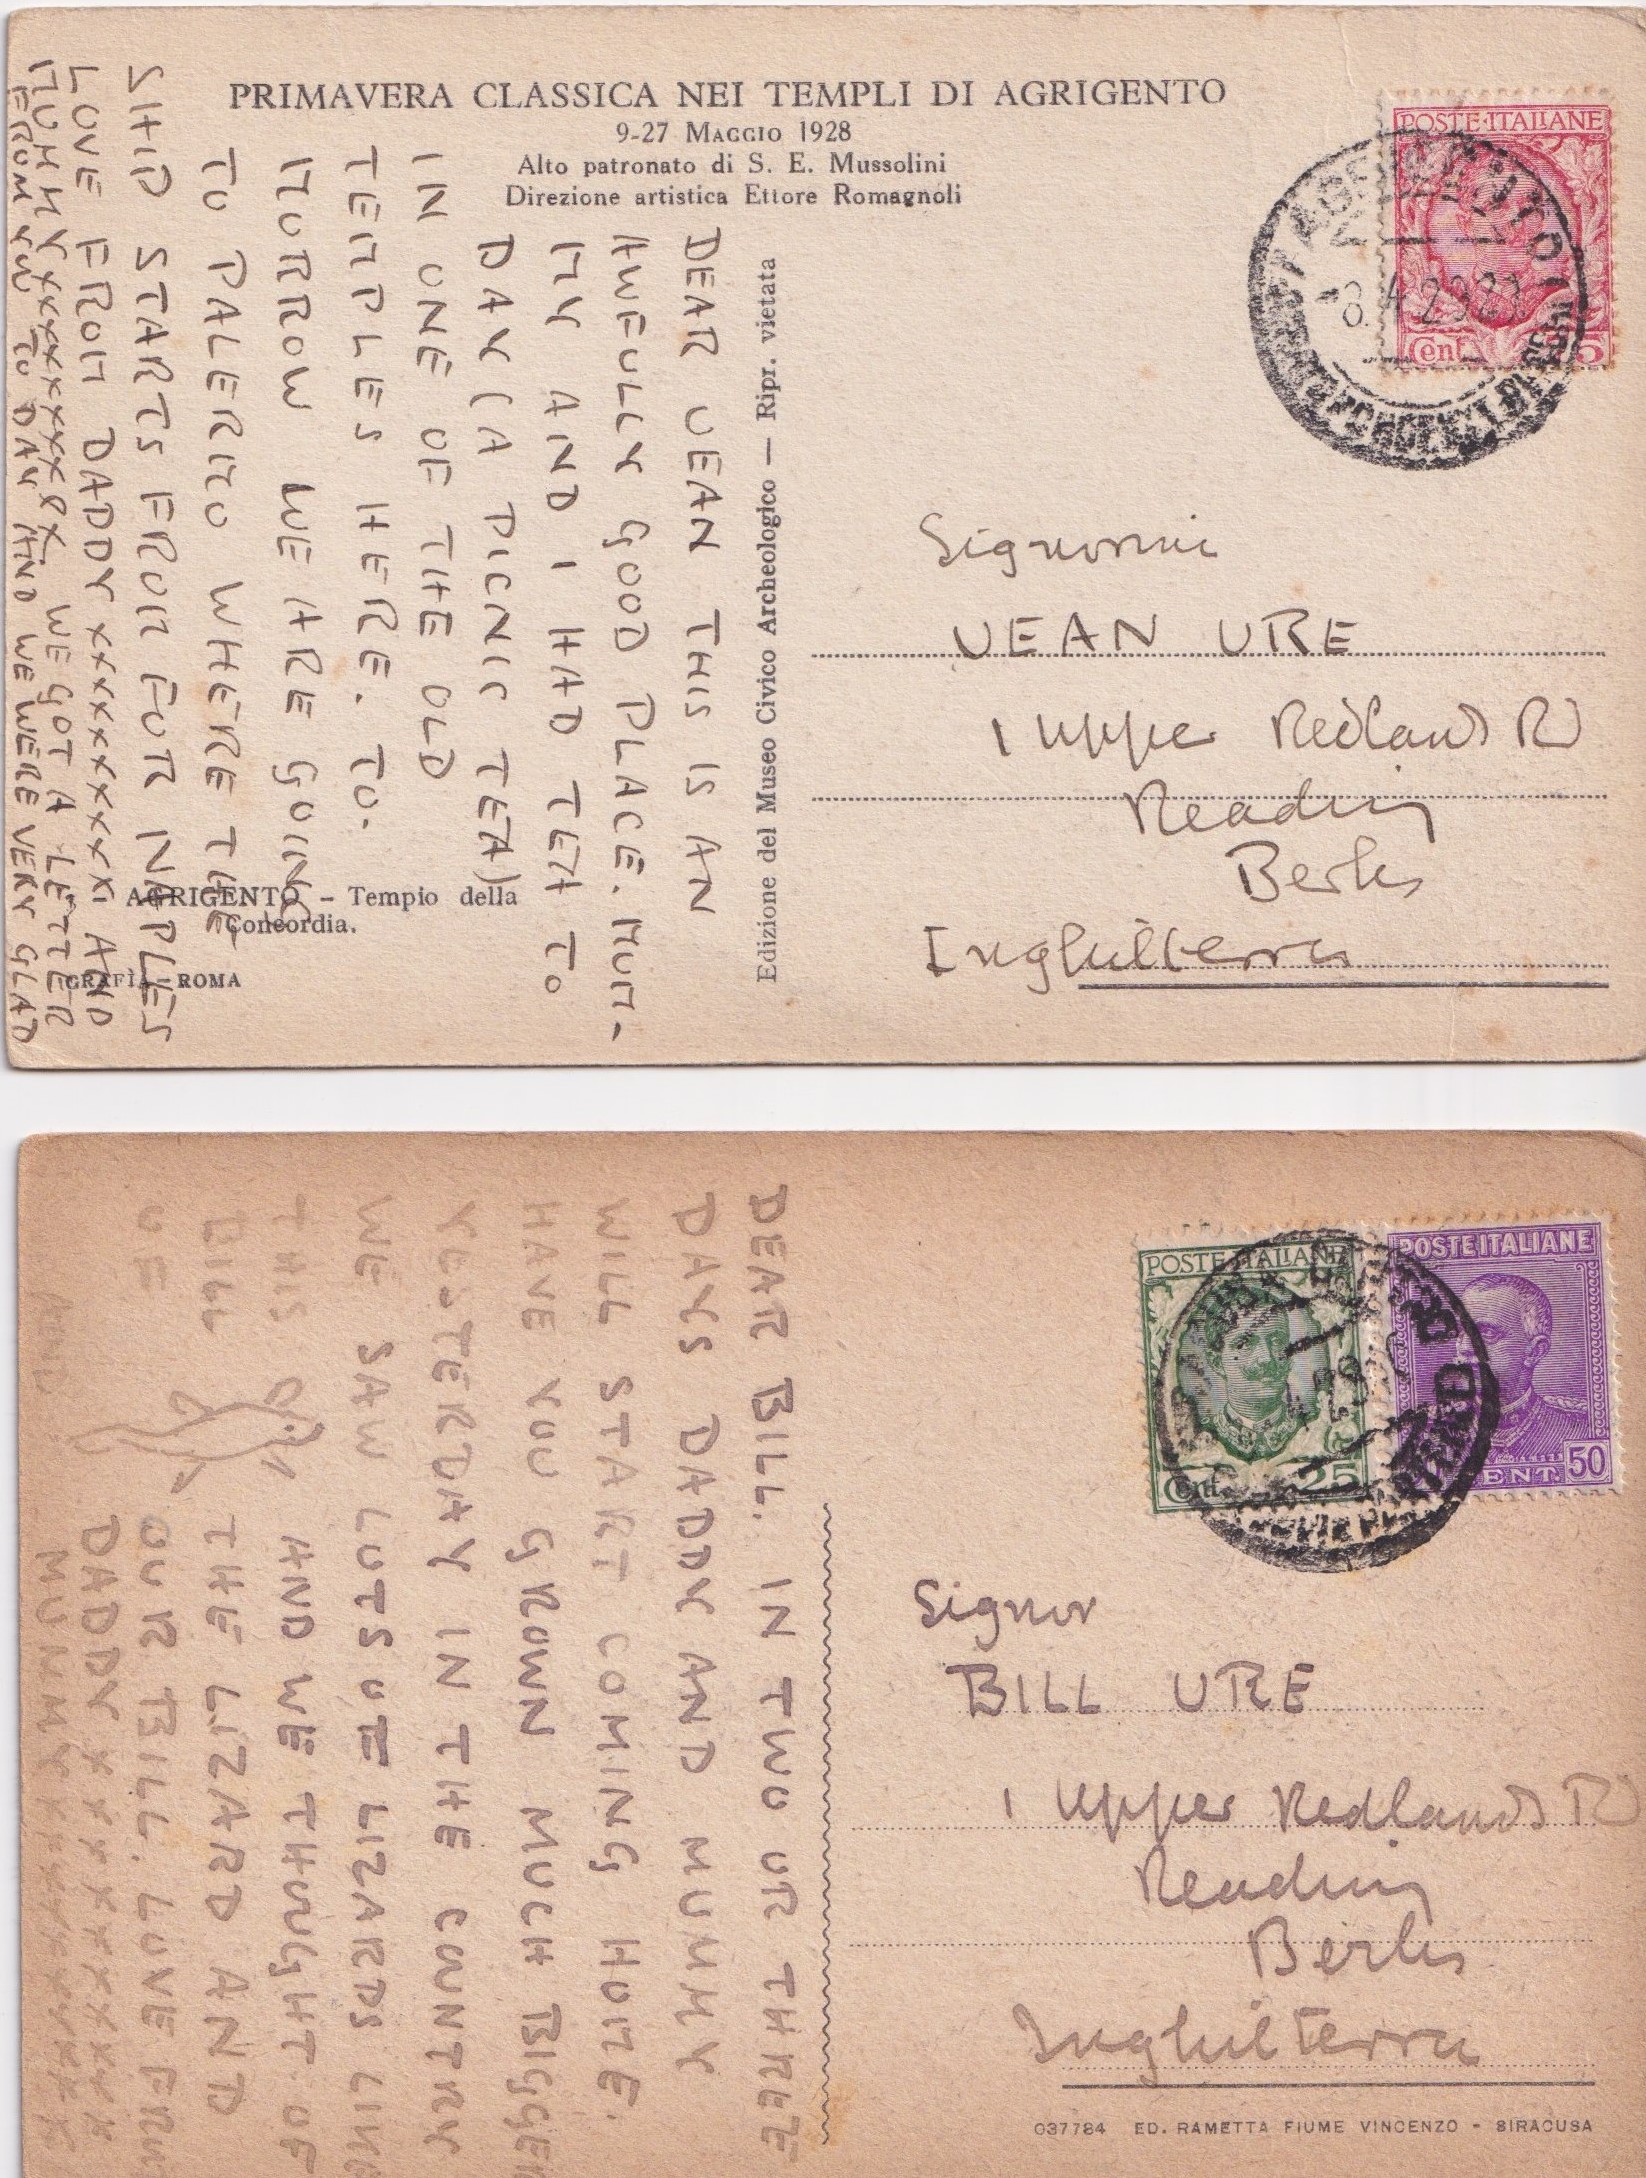 PRIMAVERA CLASSICA NEI TEMPLI DI AGRIGENTO
9-27 MAGGIO 1928
Alto patronato di S. E. Mussolini
Direzione artistica Ettore Romagnoli
DEAR JEAN THIS IS AN
AWFULLY GOOD PLACE. MUM-
MY AND I HAD TEA TO
DAY (A PICNIC TEA)
IN ONE OF THE OLD
TEMPLES HERE. TO.
MORROW WE ARE GOING
TO PALERMO WHERE THE
SHIP STARTS FROM FOR NAPLES
LOVE FROM DADDY XXXXXXXXX AND
MUMMY XXXXXXXXX WE GOT A LETTER
FROM YOU TO DAY AND WE WERE VERY GLAD
AGRIGENTO – Tempio della
Concordia.
GRAFÌA – ROMA
Edizione del Museo Civico Archeologico — Ripr. vietata
POSTE·ITALIANE
Cent.
Signorina
JEAN URE
1 Upper Redlands Rd
Reading
Berks
Inghilterra
DEAR BILL. IN TWO OR THREE
DAYS DADDY AND MUMMY
WILL START COMING HOME.
HAVE YOU GROWN MUCH BIGGER
YESTERDAY IN THE COUNTRY
WE SAW LOTS OF LIZARDS LIKE
THIS AND WE THOUGHT OF
BILL THE LIZARD AND
OF OUR BILL. LOVE FROM
DADDY XXXXXXXX
AND MUMMY XXXXXXXXX
POSTE ITALIANE
Cent. 25
POSTE ITALIANE
CENT. 50
Signor
BILL URE
1 Upper Redlands Rd
Reading
Berks
Inghilterra
037784 ED. RAMETTA FIUME VINCENZO - SIRACUSA